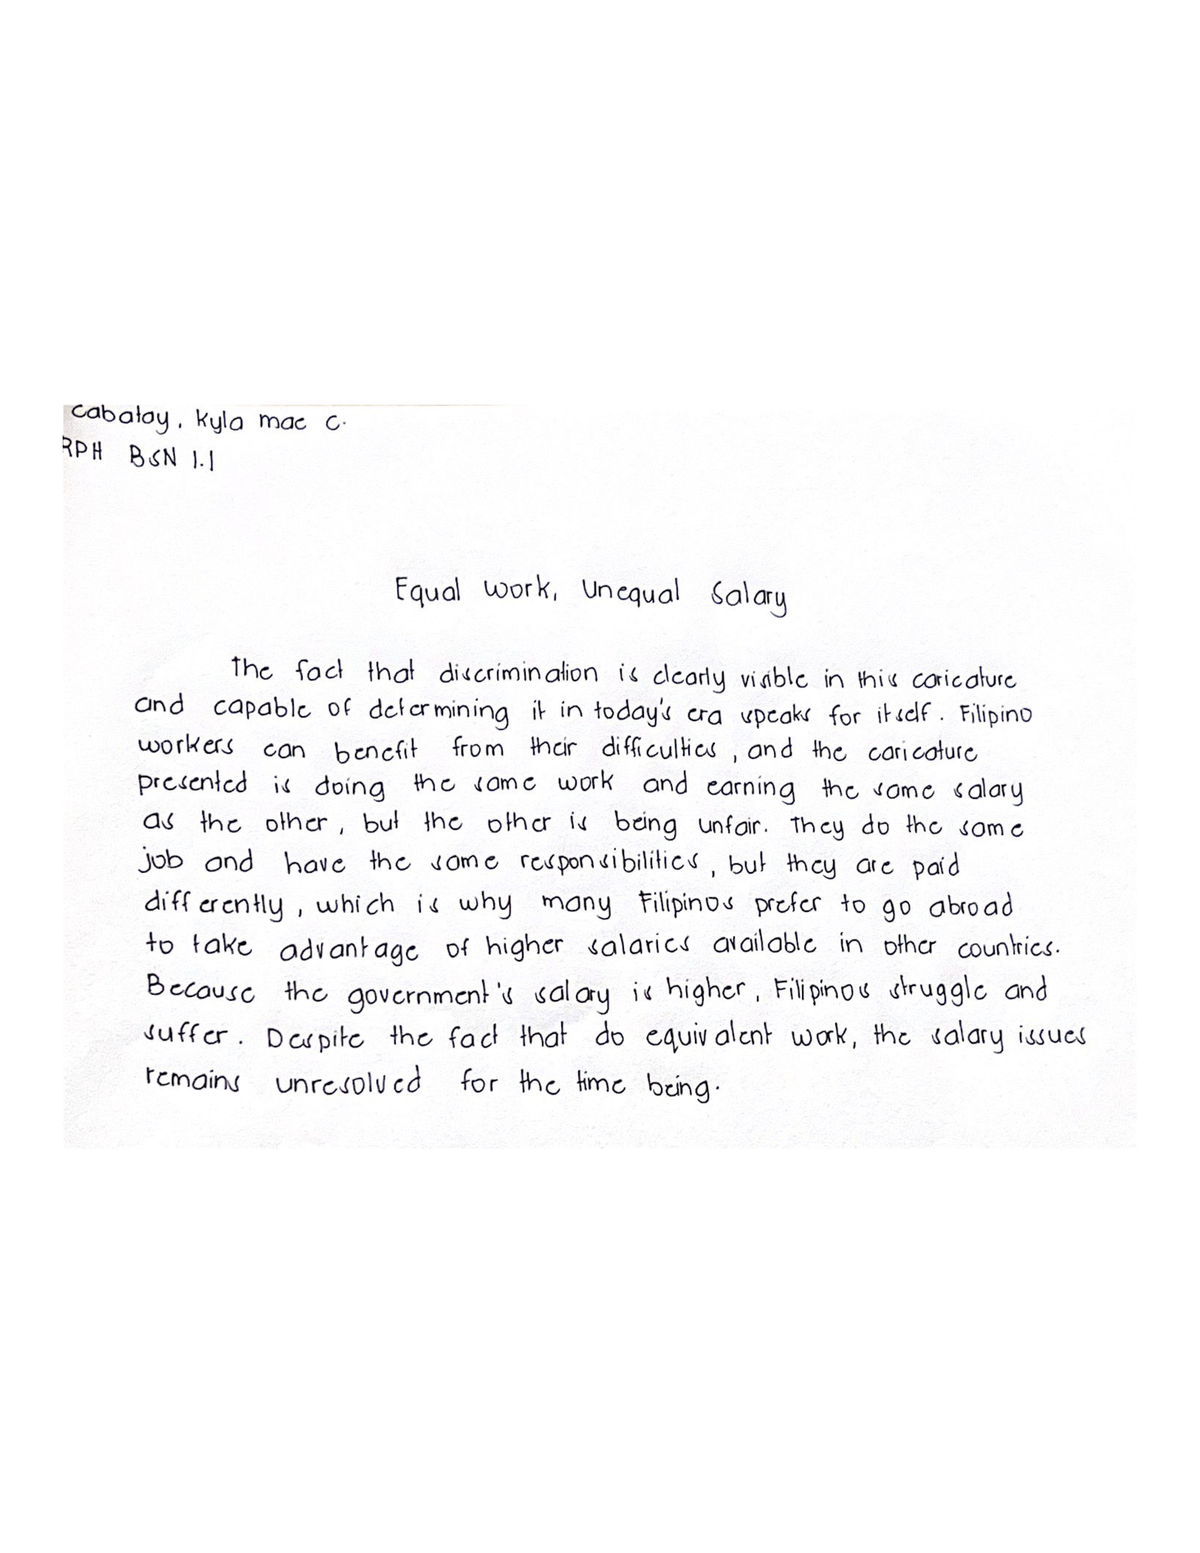 Cabatay, Kyla mae C.
RPH BSN 1.1
Equal work, Unequal Salary
The fact that discrimination is clearly visible in this caricature
and capable of determining it in today's era speaks for itself. Filipino
workers can benefit from their difficulties, and the caricature
presented is doing the same work and earning the same salary
as the other, but the other is being unfair. They do the same
job and have the same responsibilities, but they are paid
differently, which is why many Filipinos prefer to go abroad
to take advantage of higher salaries available in other countries.
Because the government's salary is higher, Filipinos struggle and
suffer. Despite the fact that do equivalent work, the salary issues
remains unresolved for the time being.